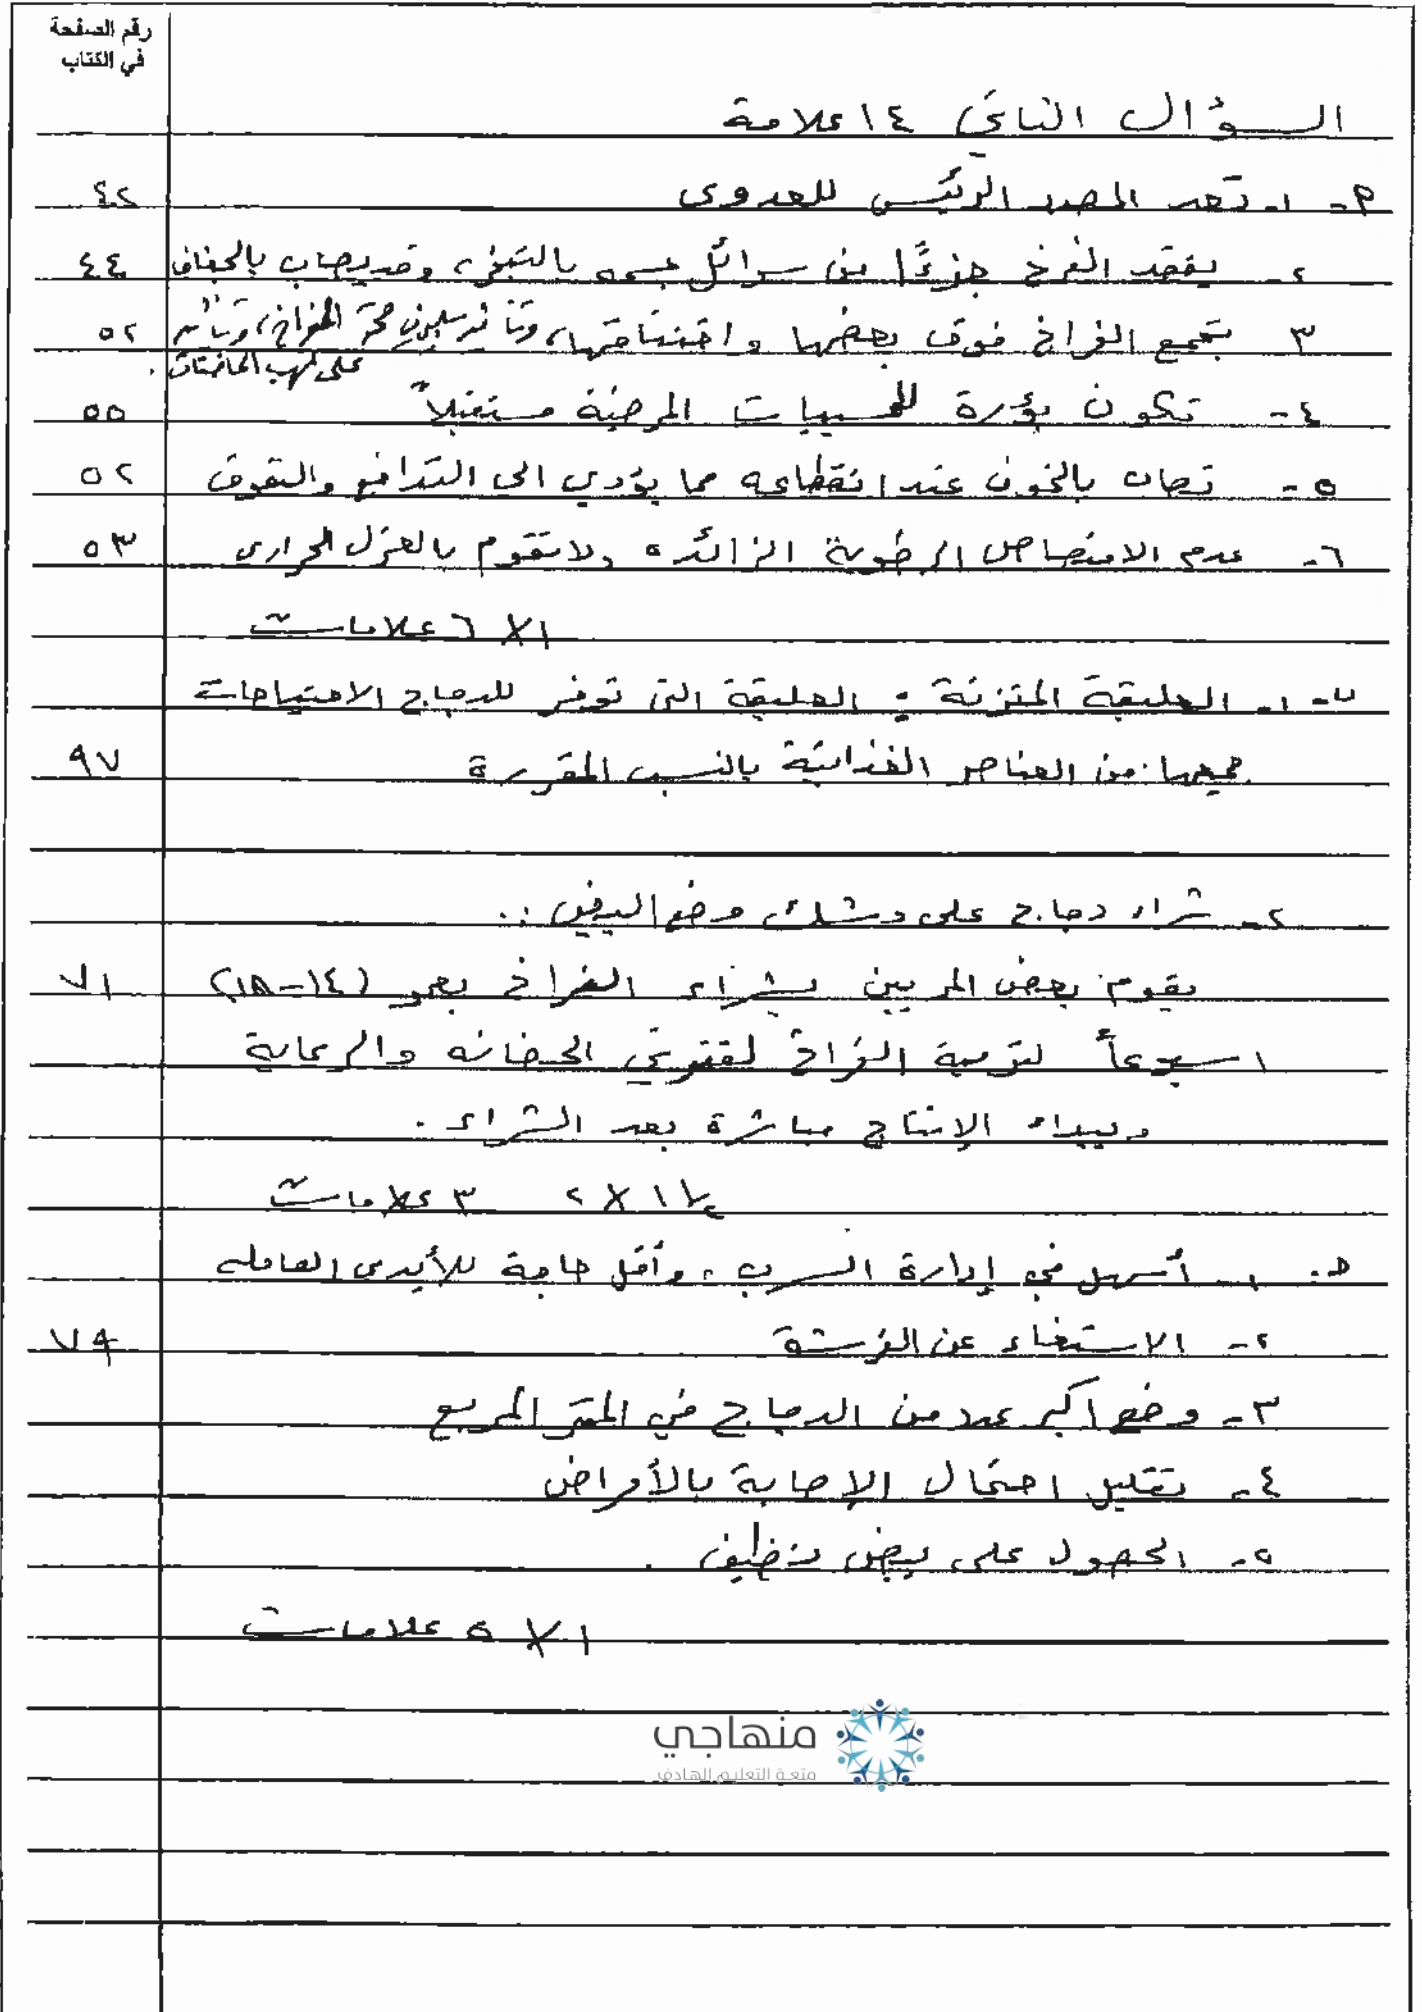 رقم الصفحة
في الكتاب
السؤال الثاني ١٤ علامة
٢ - ١- تعد المصدر الرئيس للعدوى ٤٢
٢- يفقد الفرخ جزءًا من سوائل جسمه بالتبخر، وقد يصاب بالجفاف ٤٤
٣ تجمع الفراخ فوق بعضها واختناقها، وتأثير سلبي صحة الفراخ، وتأثير ٥٢
على لهب الحاضنات.
٤- تكون بؤرة للمسببات المرضية مستقبلاً ٥٥
٥- تصاب بالخوف عند انقطاعه مما يؤدي الى التدافع والنفوق ٥٢
٦- عدم الامتصاص الرطوبة الزائدة ولا تقوم بالعزل الحراري ٥٣
١ X ٦ علامات
ب- ١- العليقة المتزنة : العليقة التي توفر للدجاج الاحتياجات
جميعها من العناصر الغذائية بالنسب المقررة ٩٧
٢- شراء دجاج على وشك وضع البيض :.
يقوم بعض المربين بشراء الفراخ بعمر (١٤-١٨) ٧١
اسبوعاً لتربية الفراخ لفترتي الحضانه والرعاية
ويبداء الإنتاج مباشرة بعد الشراء .
١ ١/٢ X ٢ ٣ علامات
ج. ١- أسهل في إدارة السرب، وأقل حاجة للأيدي العامله
٢- الاستغناء عن الفرشة ٧٩
٣- وضع أكبر عدد من الدجاج في المتر المربع
٤- تقليل احتمال الإصابة بالأمراض
٥- الحصول على بيض نظيف .
١ X ٥ علامات
منهاجي
متعة التعليم الهادف